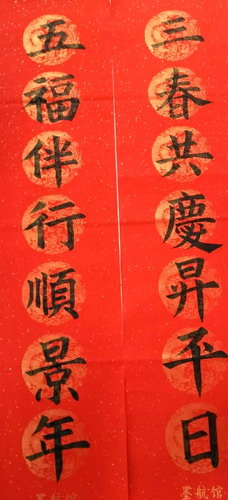 三春共慶昇平日
五福伴行順景年
墨航馆
墨航馆